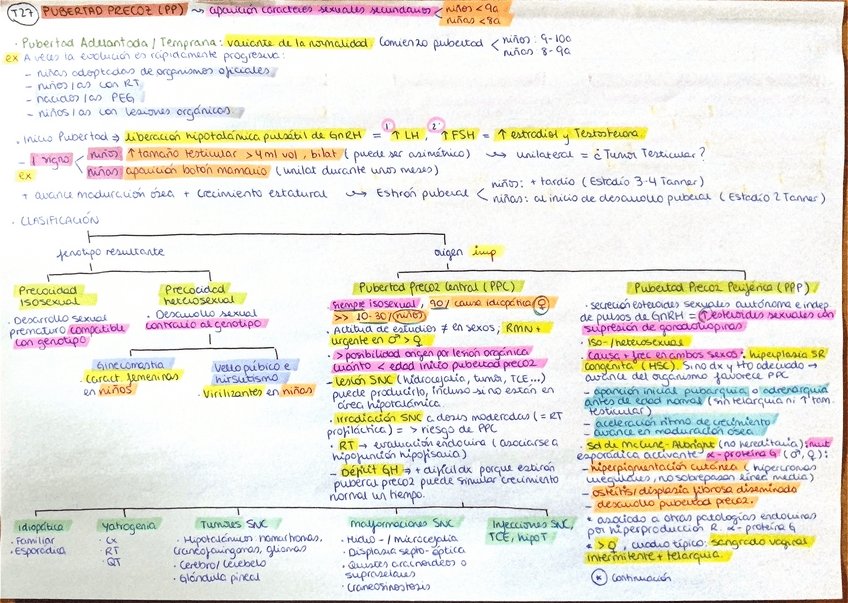 T27 PUBERTAD PRECOZ (PP) → aparición caracteres sexuales secundarios < niños <9a
niñas <8a
· Pubertad Adelantada / Temprana: variante de la normalidad Comienzo pubertad < niños: 9-10a
niñas 8-9a
ex A veces la evolución es rápidamente progresiva:
- niñas adoptadas de organismos oficiales
- niños/as con RT
- nacidos/as PEG
- niños/as con lesiones orgánicos.
· Inicio Pubertad → liberación hipotalámica pulsátil de GnRH = ① ↑ LH, ② ↑ FSH = ↑ estradiol y Testosterona.
- 1 signo < niños: ↑ tamaño testicular > 4ml vol, bilat (puede ser asimétrico) → unilateral = ¿Tumor Testicular?
ex niñas: aparición botón mamario (unilat durante unos meses)
+ avance maduración ósea + crecimiento estatural → Estirón puberal < niños: + tardío (Estadío 3-4 Tanner)
niñas: al inicio de desarrollo puberal (Estadío 2 Tanner)
· CLASIFICACIÓN
fenotipo resultante
origen imp
Precocidad
isosexual
· Desarrollo sexual
prematuro compatible
con genotipo
Precocidad
heterosexual
· Desarrollo sexual
contrario al genotipo
Ginecomastia
· Caract. femeninas
en niños
Vello púbico e
hirsutismo
· Virilizantes en niñas
Pubertad Precoz Central (PPC)
· Siempre isosexual, 90% causa idiopática ♀
>> 10-30% (niños)
· Actitud de estudios ≠ en sexos, RMN +
urgente en ♂ > ♀
· > posibilidad origen por lesión orgánica
cuanto < edad inicio pubertad precoz
- Lesión SNC (hidrocefalia, tumor, TCE...)
puede producirlo, incluso si no están en
área hipotalámica.
· Irradiación SNC a dosis moderadas (= RT
profiláctica) = > riesgo de PPC
· RT → evaluación endocrina (asociarse a
hipofunción hipofisaria)
- Déficit GH → + difícil dx porque estirón
puberal precoz puede simular crecimiento
normal un tiempo.
Pubertad Precoz Periférica (PPP)
· secreción esteroides sexuales autónoma e indep
de pulsos de GnRH = ↑ esteroides sexuales con
supresión de gonadotropinas
· Iso-/heterosexual
· Causa + frec en ambos sexos: hiperplasia SR
congénita (HSC). Si no dx y tto adecuado →
avance del organismo favorece PPC
- aparición inicial pubarquia o adrenarquia
antes de edad normal (sin telarquia ni ↑ tam.
testicular)
- aceleración ritmo de crecimiento
avance en maduración ósea
· Sd de McCune-Albright (no hereditaria): mut
esporádica activante α-proteína G (♂, ♀):
- hiperpigmentación cutánea (hipercromas
irregulares, no sobrepasan línea media)
- osteitis/displasia fibrosa diseminada
- desarrollo pubertad precoz.
* asociado a otras patologías endocrinas
por hiperproducción R. α-proteína G
* > ♀, cuadro típico: sangrado vaginal
intermitente + telarquia.
* Continuación
Idiopática
· Familiar
· Esporádica
Yatrogenia
· Cx
· RT
· QT
Tumores SNC
· Hipotalámicos: hamartromas,
craneofaringomas, gliomas
· Cerebro/Cerebelo
· Glándula pineal
Malformaciones SNC
· Hidro-/microcefalia
· Displasia septo-óptica
· Quistes aracnoideos o
supraselares
· Craneosinostosis
Infecciones SNC,
TCE, hipoT